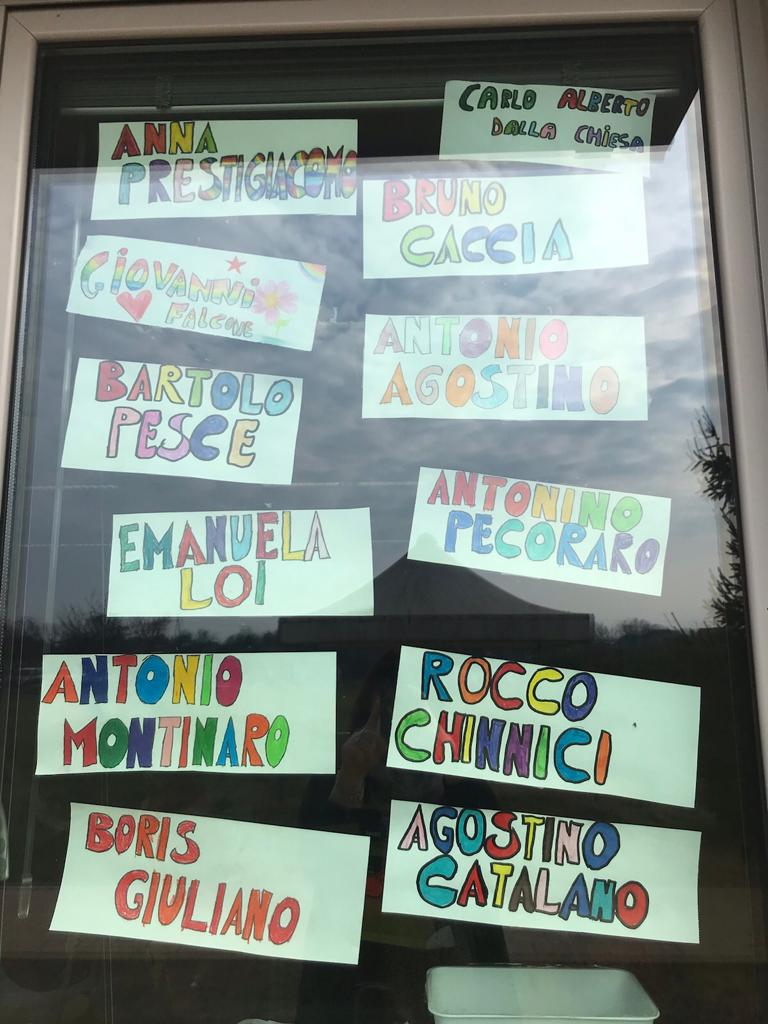 CARLO ALBERTO
DALLA CHIESA
ANNA
PRESTIGIACOMO
BRUNO
CACCIA
GIOVANNI
FALCONE
ANTONIO
AGOSTINO
BARTOLO
PESCE
ANTONINO
PECORARO
EMANUELA
LOI
ANTONIO
MONTINARO
ROCCO
CHINNICI
BORIS
GIULIANO
AGOSTINO
CATALANO